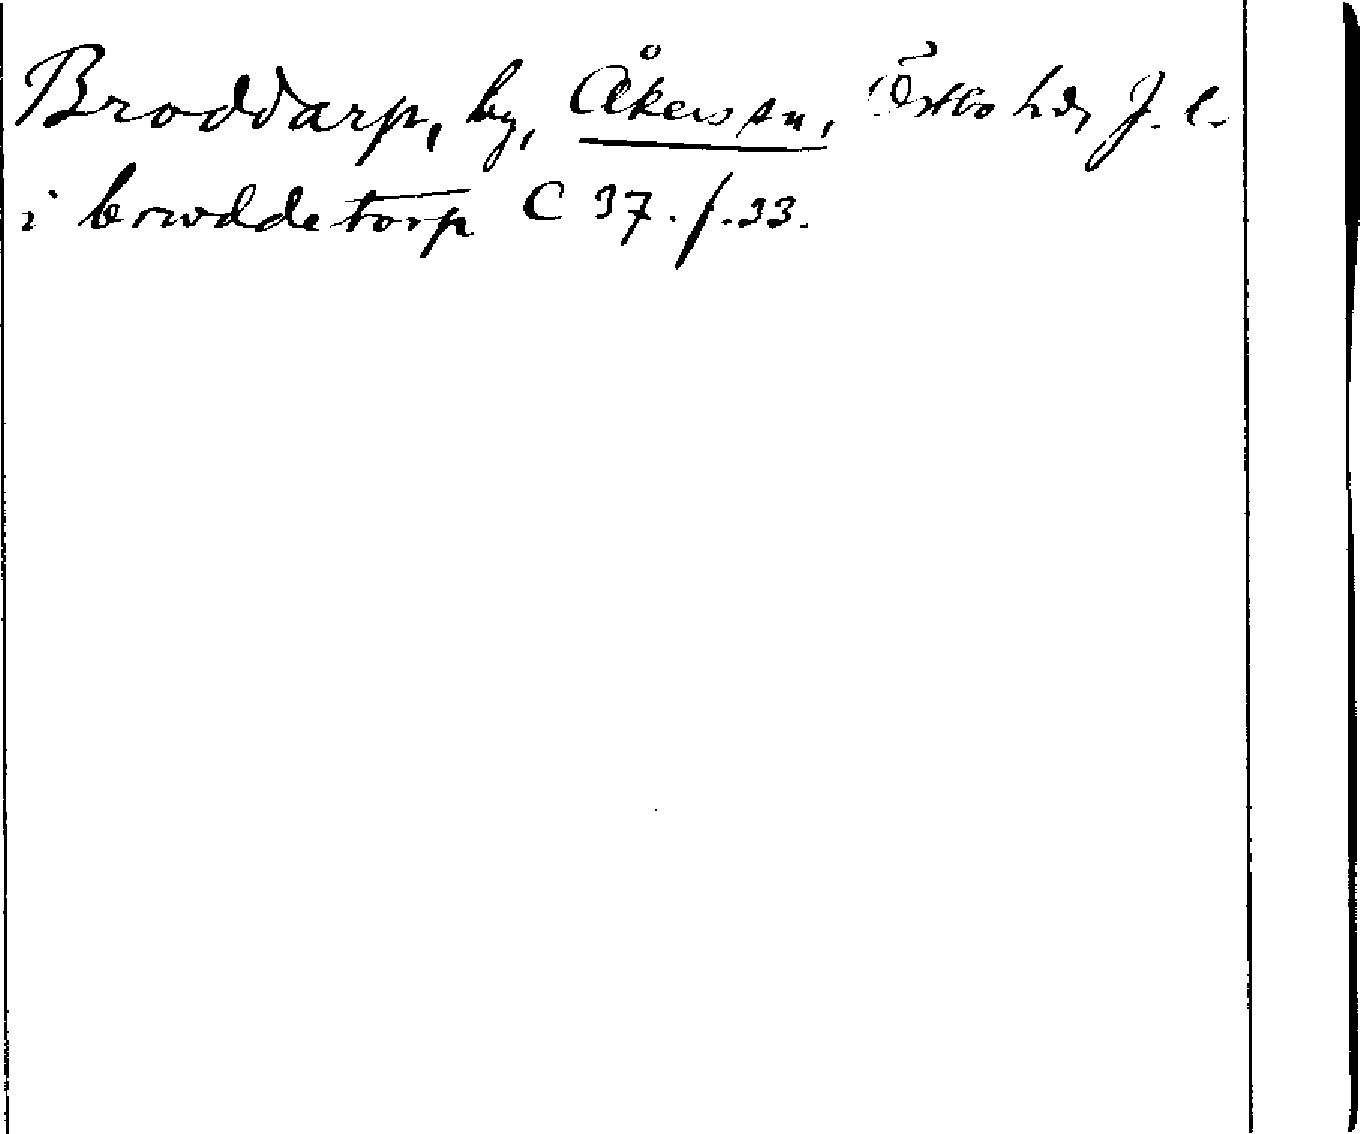 Broddarp, by, Åkers sn, Östbo hd, J. l.
i brodde torp C 37. f. 33.